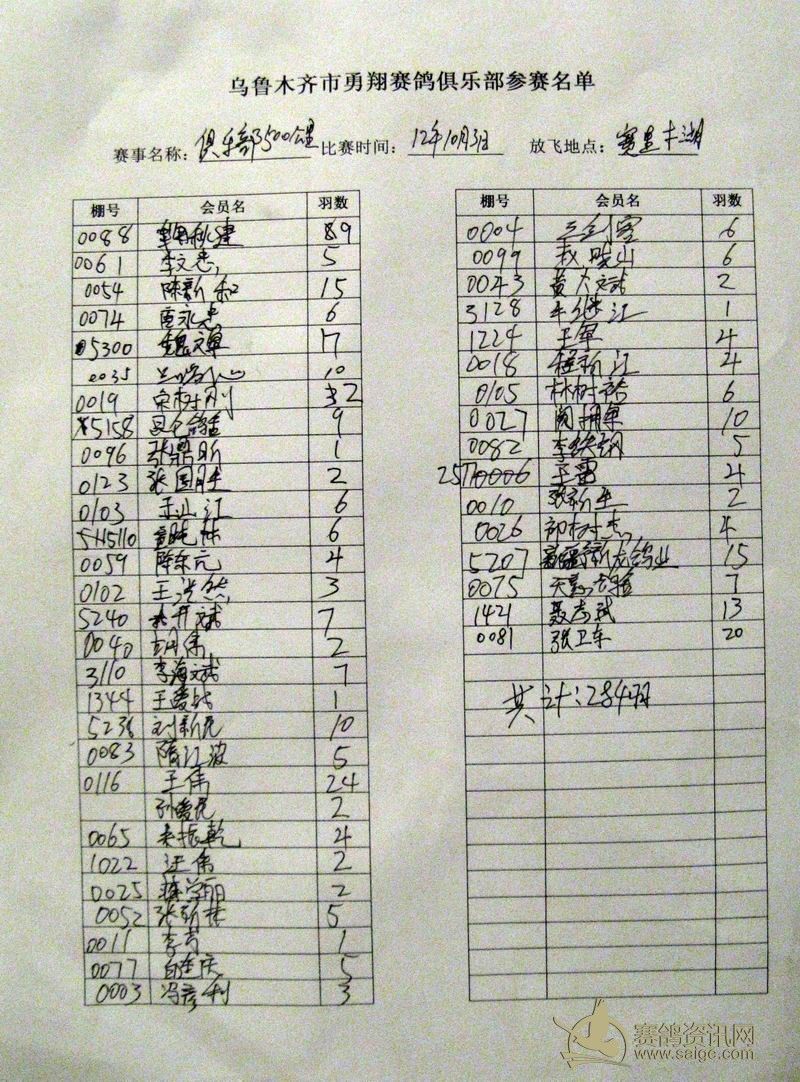 乌鲁木齐市勇翔赛鸽俱乐部参赛名单
赛事名称：俱乐部500公里 比赛时间：12年10月3日 放飞地点：赛里木湖
棚号 会员名 羽数
0088 89
0061 李文忠 5
0054 陈新和 15
0074 唐永 6
05300 魏文革 17
0035 10
0019 宋树刚 32
5158 9
0096 张鼎昕 1
0123 张国胜 2
0103 王山江 6
5115110 6
0059 陈东元 4
0102 王浩然 3
5240 7
0040 胡伟 2
3110 李海斌 7
1344 王爱 1
5238 刘新民 10
0083 隋江波 5
0116 王伟 24
孙爱民 2
0065 振乾 4
1022 汪伟 2
0025 学丽 2
0052 张新林 5
0011 李芳 1
0077 5
0003 冯彦利 3
棚号 会员名 羽数
0004 三剑客 6
0099 赵晓山 6
0043 黄大斌 2
3128 继江 1
1224 王军 4
0018 程新江 4
0105 林树裕 6
0027 阎拥军 10
0082 李铁钢 5
2571 王雷 4
0010 张新生 2
0026 祁树杰 4
5207 新龙鸽业 15
0075 7
1421 聂志斌 13
0081 张卫东 20
共计：284羽
赛鸽资讯网
www.saige.com